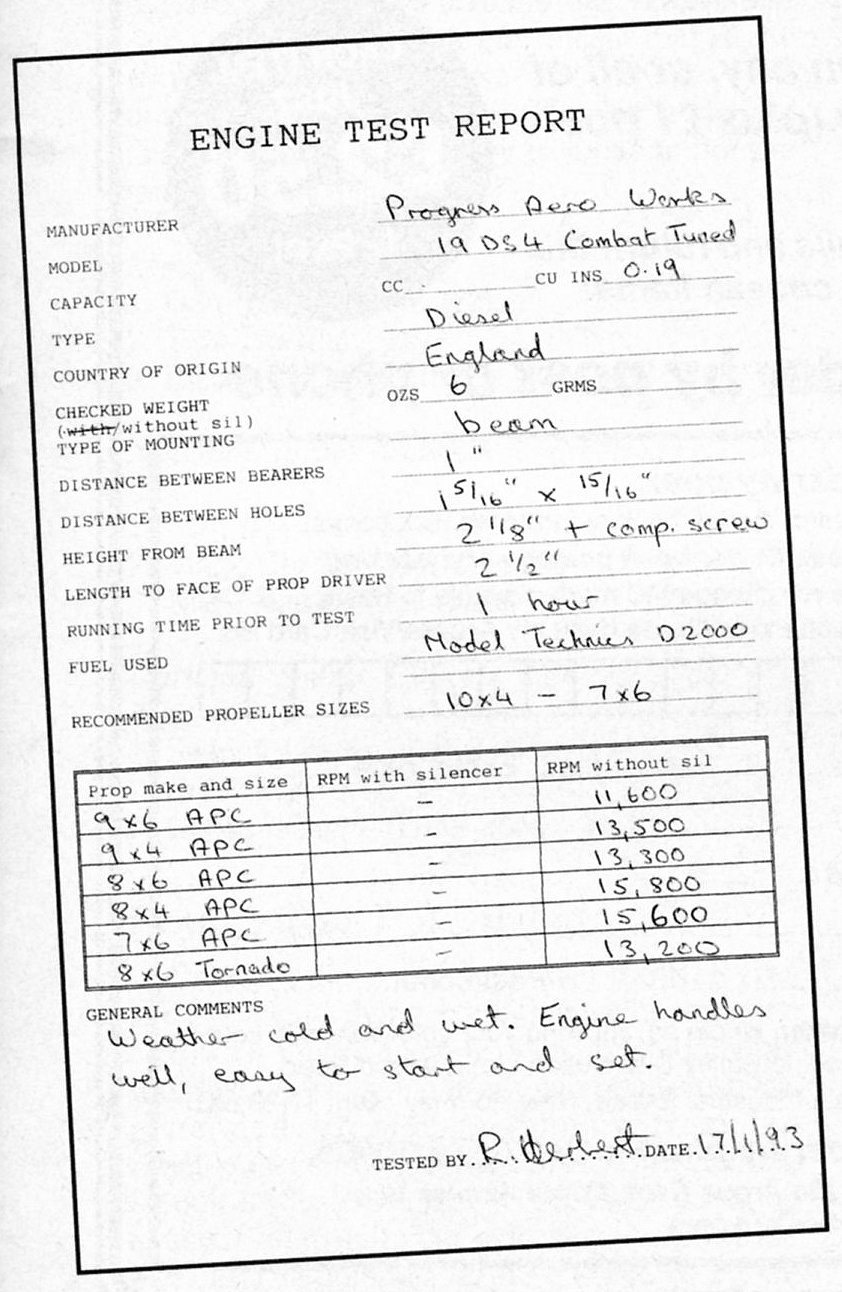 ENGINE TEST REPORT
MANUFACTURER Progress Aero Works
MODEL 19 DS4 Combat Tuned
CAPACITY CC. CU INS 0.19
TYPE Diesel
COUNTRY OF ORIGIN England
CHECKED WEIGHT OZS 6 GRMS
(with/without sil)
TYPE OF MOUNTING beam
DISTANCE BETWEEN BEARERS 1"
DISTANCE BETWEEN HOLES 1 5/16" x 15/16"
HEIGHT FROM BEAM 2 1/8" + comp. screw
LENGTH TO FACE OF PROP DRIVER 2 1/2"
RUNNING TIME PRIOR TO TEST 1 hour
FUEL USED Model Technics D2000
RECOMMENDED PROPELLER SIZES 10x4 - 7x6
Prop make and size RPM with silencer RPM without sil
9x6 APC - 11,600
9x4 APC - 13,500
8x6 APC - 13,300
8x4 APC - 15,800
7x6 APC - 15,600
8x6 Tornado - 13,200
GENERAL COMMENTS
Weather cold and wet. Engine handles
well, easy to start and set.
TESTED BY R. Herbert DATE 17/1/93